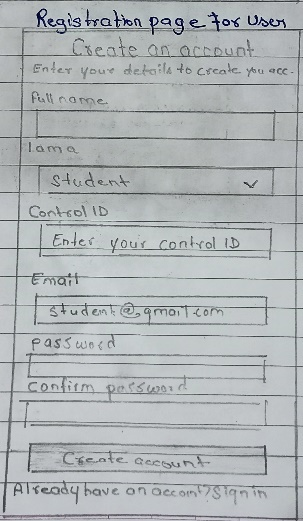 Registration page for User
Create an account
Enter your details to create you acc.
Full name
Iam a
Student
Control ID
Enter your control ID
Email
student@gmail.com
password
Confirm password
Create account
Already have an account? Sign in